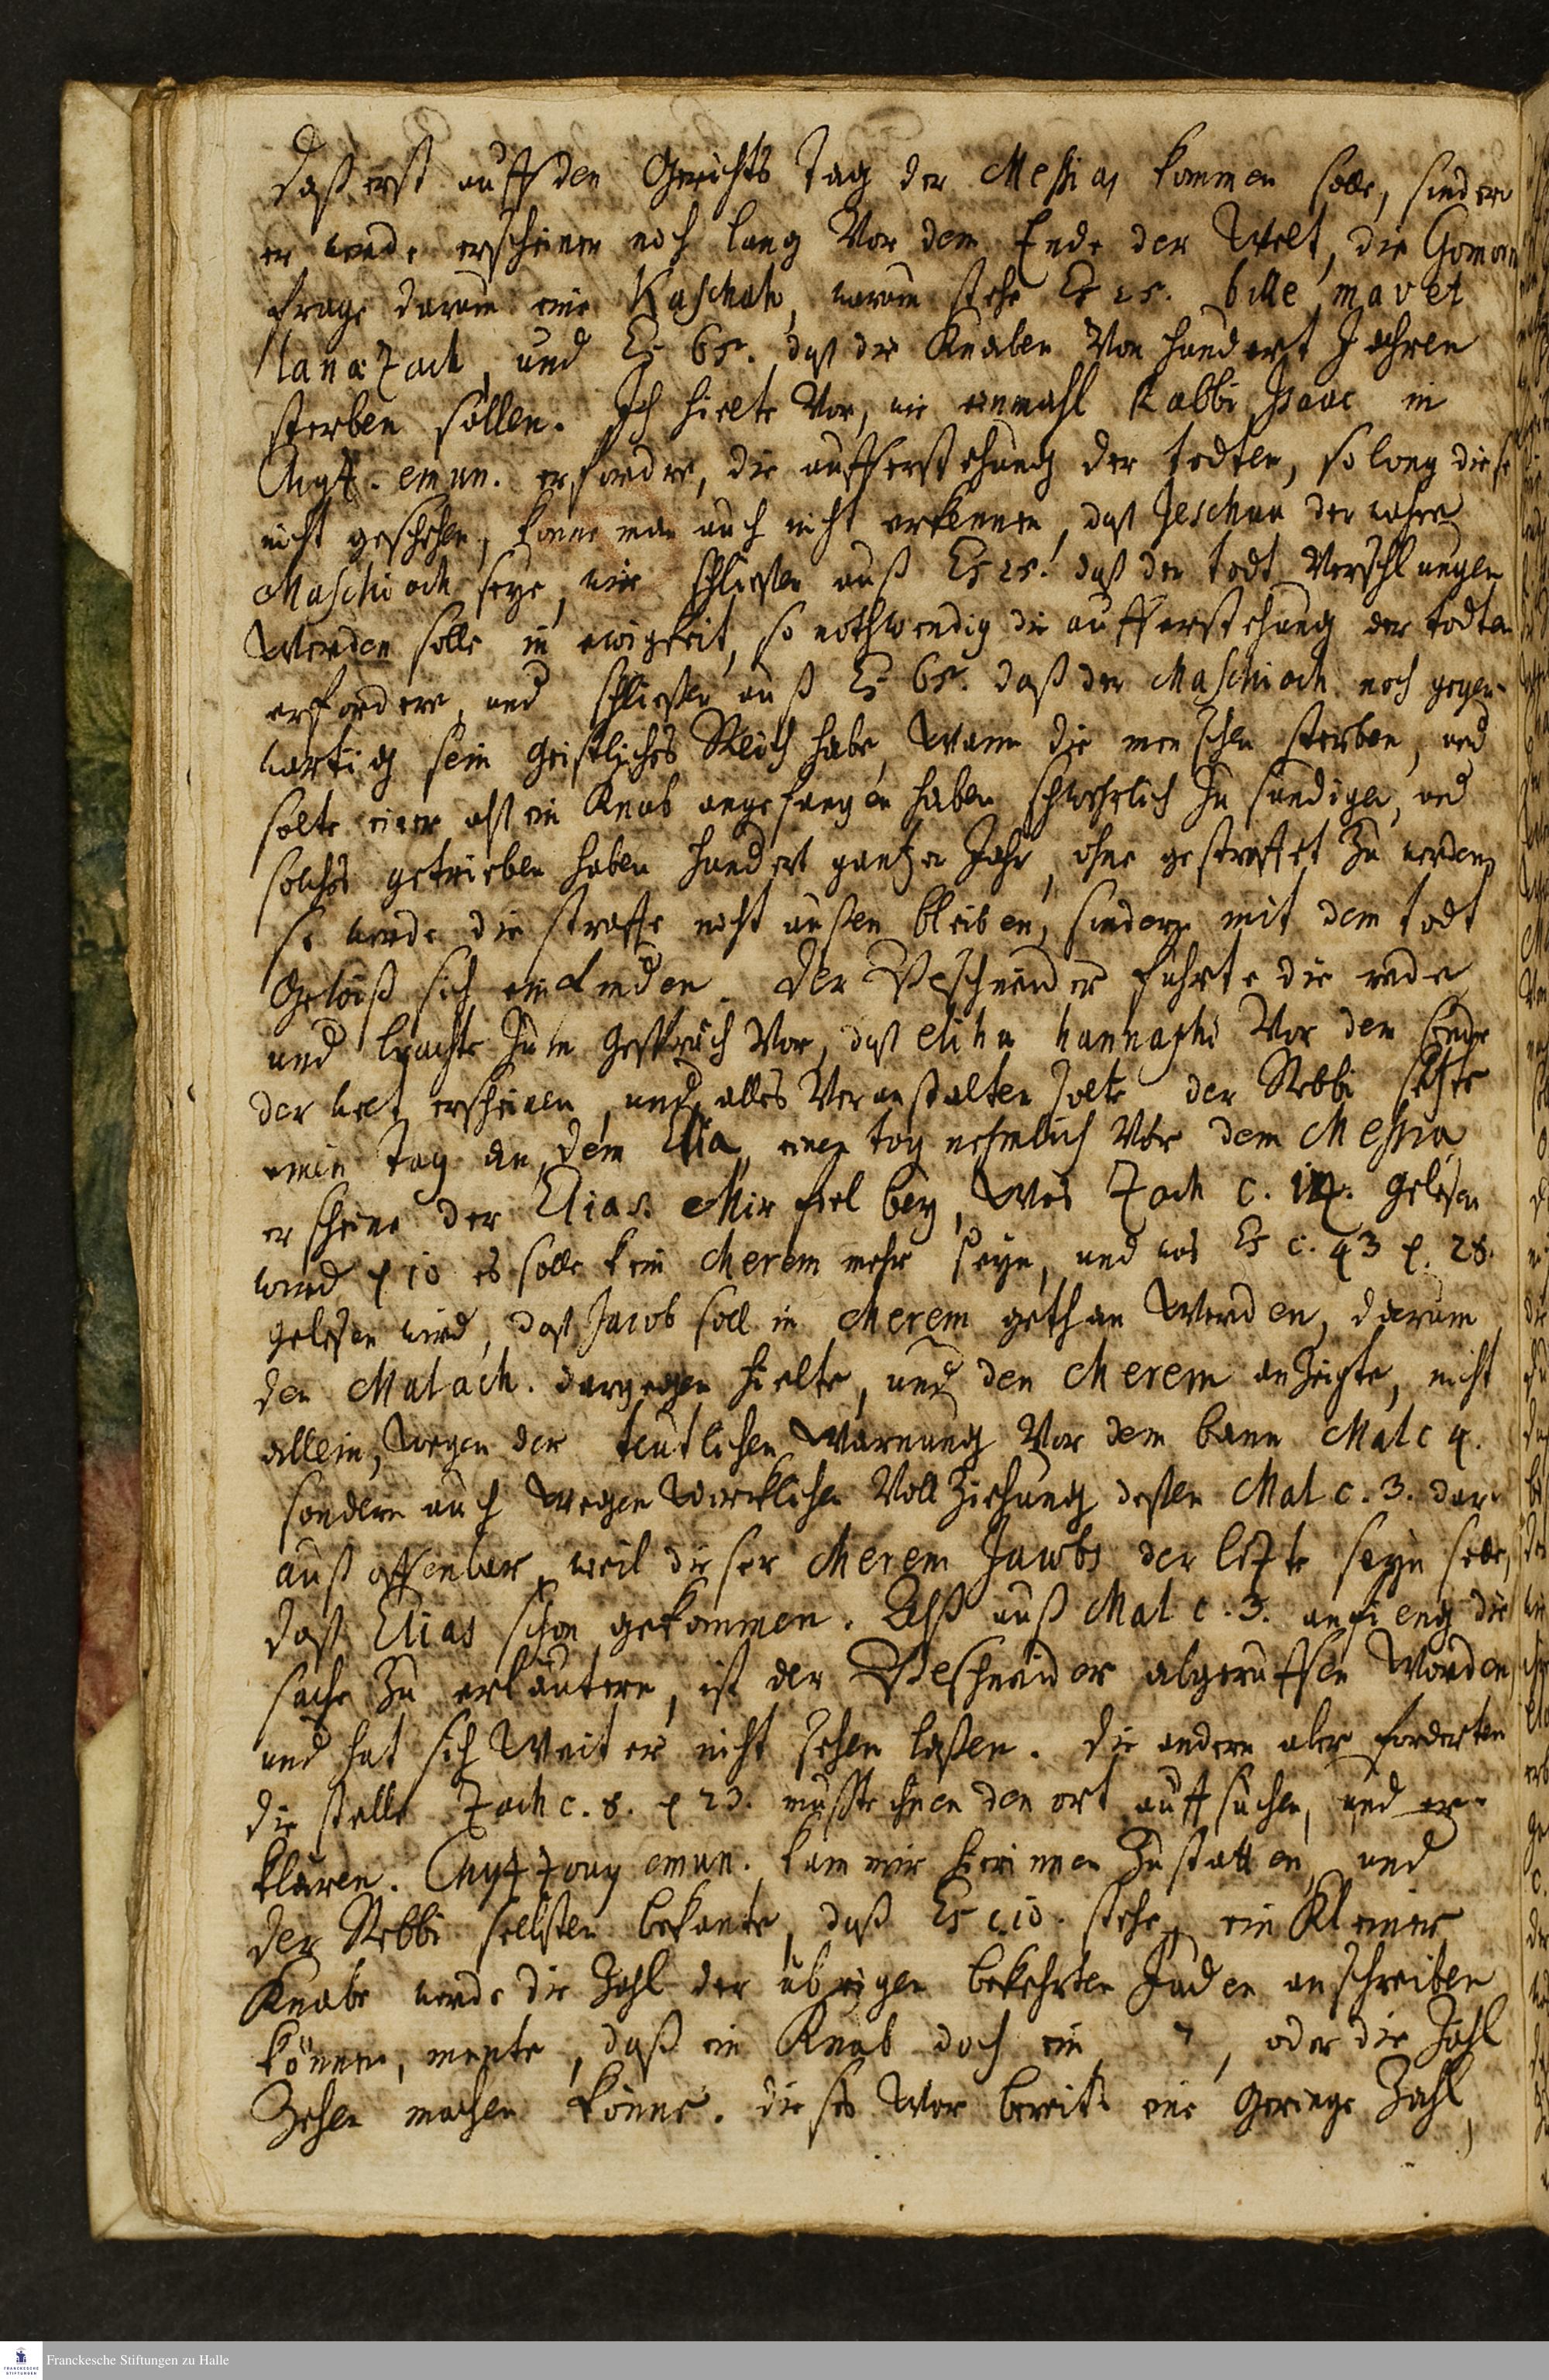 daß erst auff den Gerichts Tag der Messias kommen solle, sondern
er werde erscheinen noch lang Vor dem Ende der Welt, die Gomora
frage darum eine Kaschah, warum stehe Es 25. bille mavet
lanæzach, und Es 65. daß die Knaben Von hundert Jahren
sterben sollen. Ich hielte Vor, wie einmahl Rabbi Isaac in
emun. erfordre, die aufferstehung der todten, so lang diese
nicht geschehen, könne man auch nicht erkennen, daß Jeschua der wahre
Maschiach seye, wir schließen auß Es 25. daß der todt Verschlungen
Werden solle in ewigkeit, so nothwendig die aufferstehung der todten
erfordere, und schließen auß Es 65. daß der Maschiach noch gegen-
wärtig sein geistliches Reich habe, Wann die menschen sterben, und
solte einer alß ein Knab angefangen haben schwehrlich zu sündigen, und
solches getrieben haben hundert gantzer Jahr, ohne gestraffet zu werden,
so werde die straffe nicht außen bleiben, sondern mit dem todt
Gewiß sich einfinden. Der Beschneider führte die rede
und brachte zum Gespräch Vor, daß elihu hannaphi Vor dem Ende
der welt erscheinen, und alles Veranstalten solte der Rebbi setzte
einen Tag an, dem Elia, einen tag nehmlich Vor dem Messia
erscheine der Elias. Mir fiel bey, Was Zach c. 14. gelesen
wird v 10 es solle kein Cherem mehr seyn, und was Es c. 43 v. 28.
gelesen wird, daß Jacob soll in Cherem gethan Werden, darum
den Malach. dargegen hielte, und den Cherem anzeigte, nicht
allein, Wegen der teutlichen Warnung Vor dem bann Mal c 4.
sondern auch Wegen Wircklicher Vollziehung deßen Mal c. 3. dar-
auß offenbar, weil dieser Cherem Jacobs der letzte seyn solle,
daß Elias schon gekommen. Alß auß Mal c. 3. anfieng die
sache zu erläutern, ist der Beschneider abgeruffen Worden,
und hat sich Weiter nicht sehen laßen. Die andern aber forderten
die stelle Zach c. 8. v 23. mußte ihnen den ort auffsuchen, und er-
klären. emun. kam mir hierinnen zustatten, und
der Rebbi selbsten bekante, daß Es c. 10. stehe, ein Kleiner
Knabe werde die Zahl der übrigen bekehrten Juden anschreiben
können, mente, daß ein Knab doch ein י, oder die Zahl
Zehen machen könne. dieses War bereits eine geringe Zahl,
Franckesche Stiftungen zu Halle